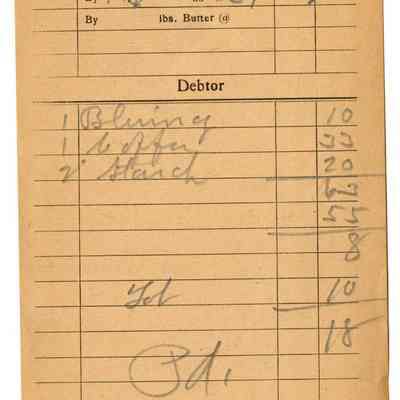 By lbs. Butter (@
Debtor
1 Bluing 10
1 Coffee 33
2 Starch 20
63
55
8
Tob 10
18
Pd.